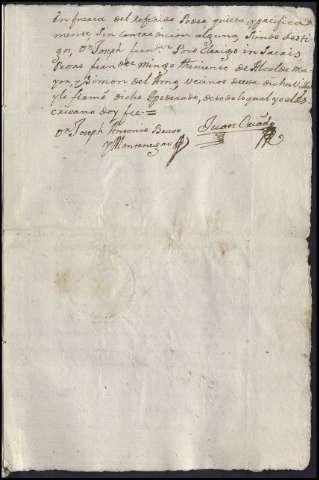 En fuerza del referido Poder quieta, y pacifica
mente, Sin contradicion alguna, siendo testi
gos, Dn Joseph fran.co Clerigo in Sacris
Pedro fran.co de Mingo, theniente de Alcalde Ma
yor, y Simon del vecinos de esta dicha Villa
y lo firmó dicho Apoderado, de todo lo qual yo el Es
crivano doy fee =
Dn Joseph Antonio
y Montenegro
Juan